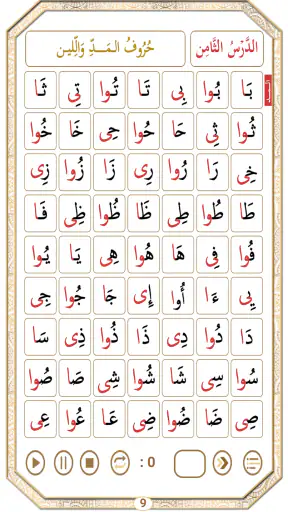 الدَّرْسُ الثَّامِن حُرُوفُ الـمَـــدِّ وَالِّلين
بَا بُوا بِى تَا تُوا تِي ثَا
ثُوا ثِي حَا حُوا حِى خَا خُوا
خِى رَا رُوا رِى زَا زُوا زِى
طَا طُوا طِى ظَا ظُوا ظِى فَا
فُوا فِى هَا هُوا هِى يَا يُوا
يِى ءَا أُوا إِى جَا جُوا جِى
دَا دُوا دِى ذَا ذُوا ذِى سَا
سُوا سِى شَا شُوا شِى صَا صُوا
صِى ضَا ضُوا ضِى عَا عُوا عِى
: 0
9